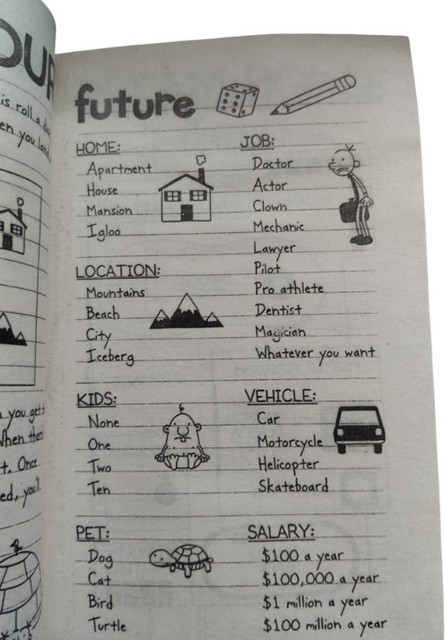 OUR
future
is roll a
en you lan
HOME:
Apartment
House
Mansion
Igloo
JOB:
Doctor
Actor
Clown
Mechanic
Lawyer
Pilot
Pro athlete
Dentist
Magician
Whatever you want
LOCATION:
Mountains
Beach
City
Iceberg
KIDS:
None
One
Two
Ten
VEHICLE:
Car
Motorcycle
Helicopter
Skateboard
you get
When
t. Once
ed, you'll
PET:
Dog
Cat
Bird
Turtle
SALARY:
$100 a year
$100,000 a year
$1 million a year
$100 million a year